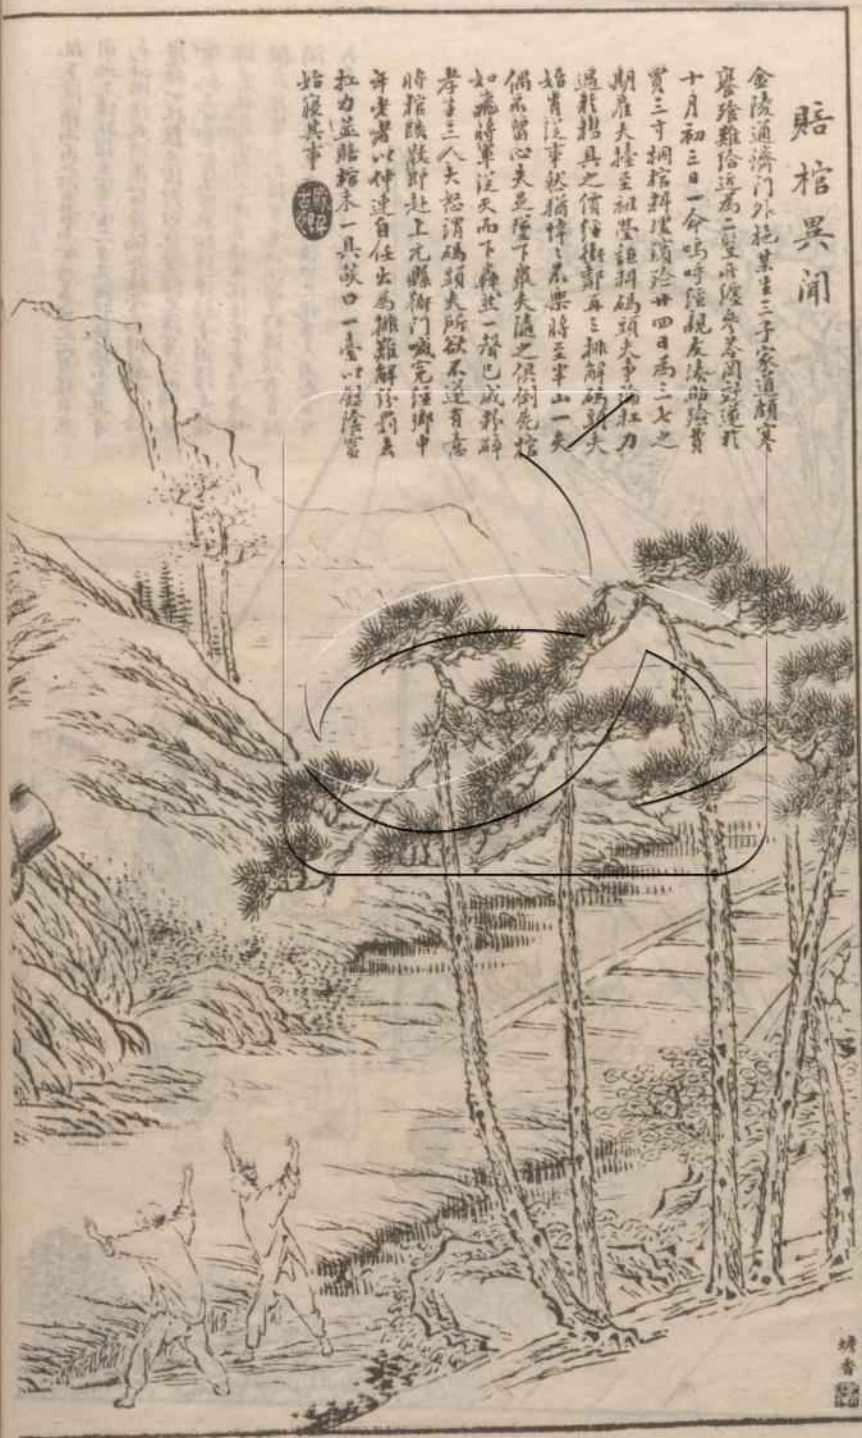 賠棺異聞
金陵通濟門外施某生三子家道頗寒
饔飧難給近為二豎所纏參苓罔效遂於
十月初三日一命嗚呼經親友湊助殮費
買三寸桐棺料理殯殮廿四日為三七之
期雇夫擡至祖塋詎料碼頭夫爭論扛力
過於槥具之價經街鄰再三排解碼頭夫
始肯從事然猶悻悻不樂時至半山一夫
偶不留心失足墜下眾夫隨之俱倒死棺
如飛將軍從天而下轟然一聲已成粉碎
孝子三人大怒謂碼頭夫所欲不遂有意
將棺跌散即赴上元縣衙門喊冤經鄉中
年老者以仲連自任出為排難解紛罰去
扛力並賠棺木一具燄口一臺以慰陰靈
始寢其事
蟾香